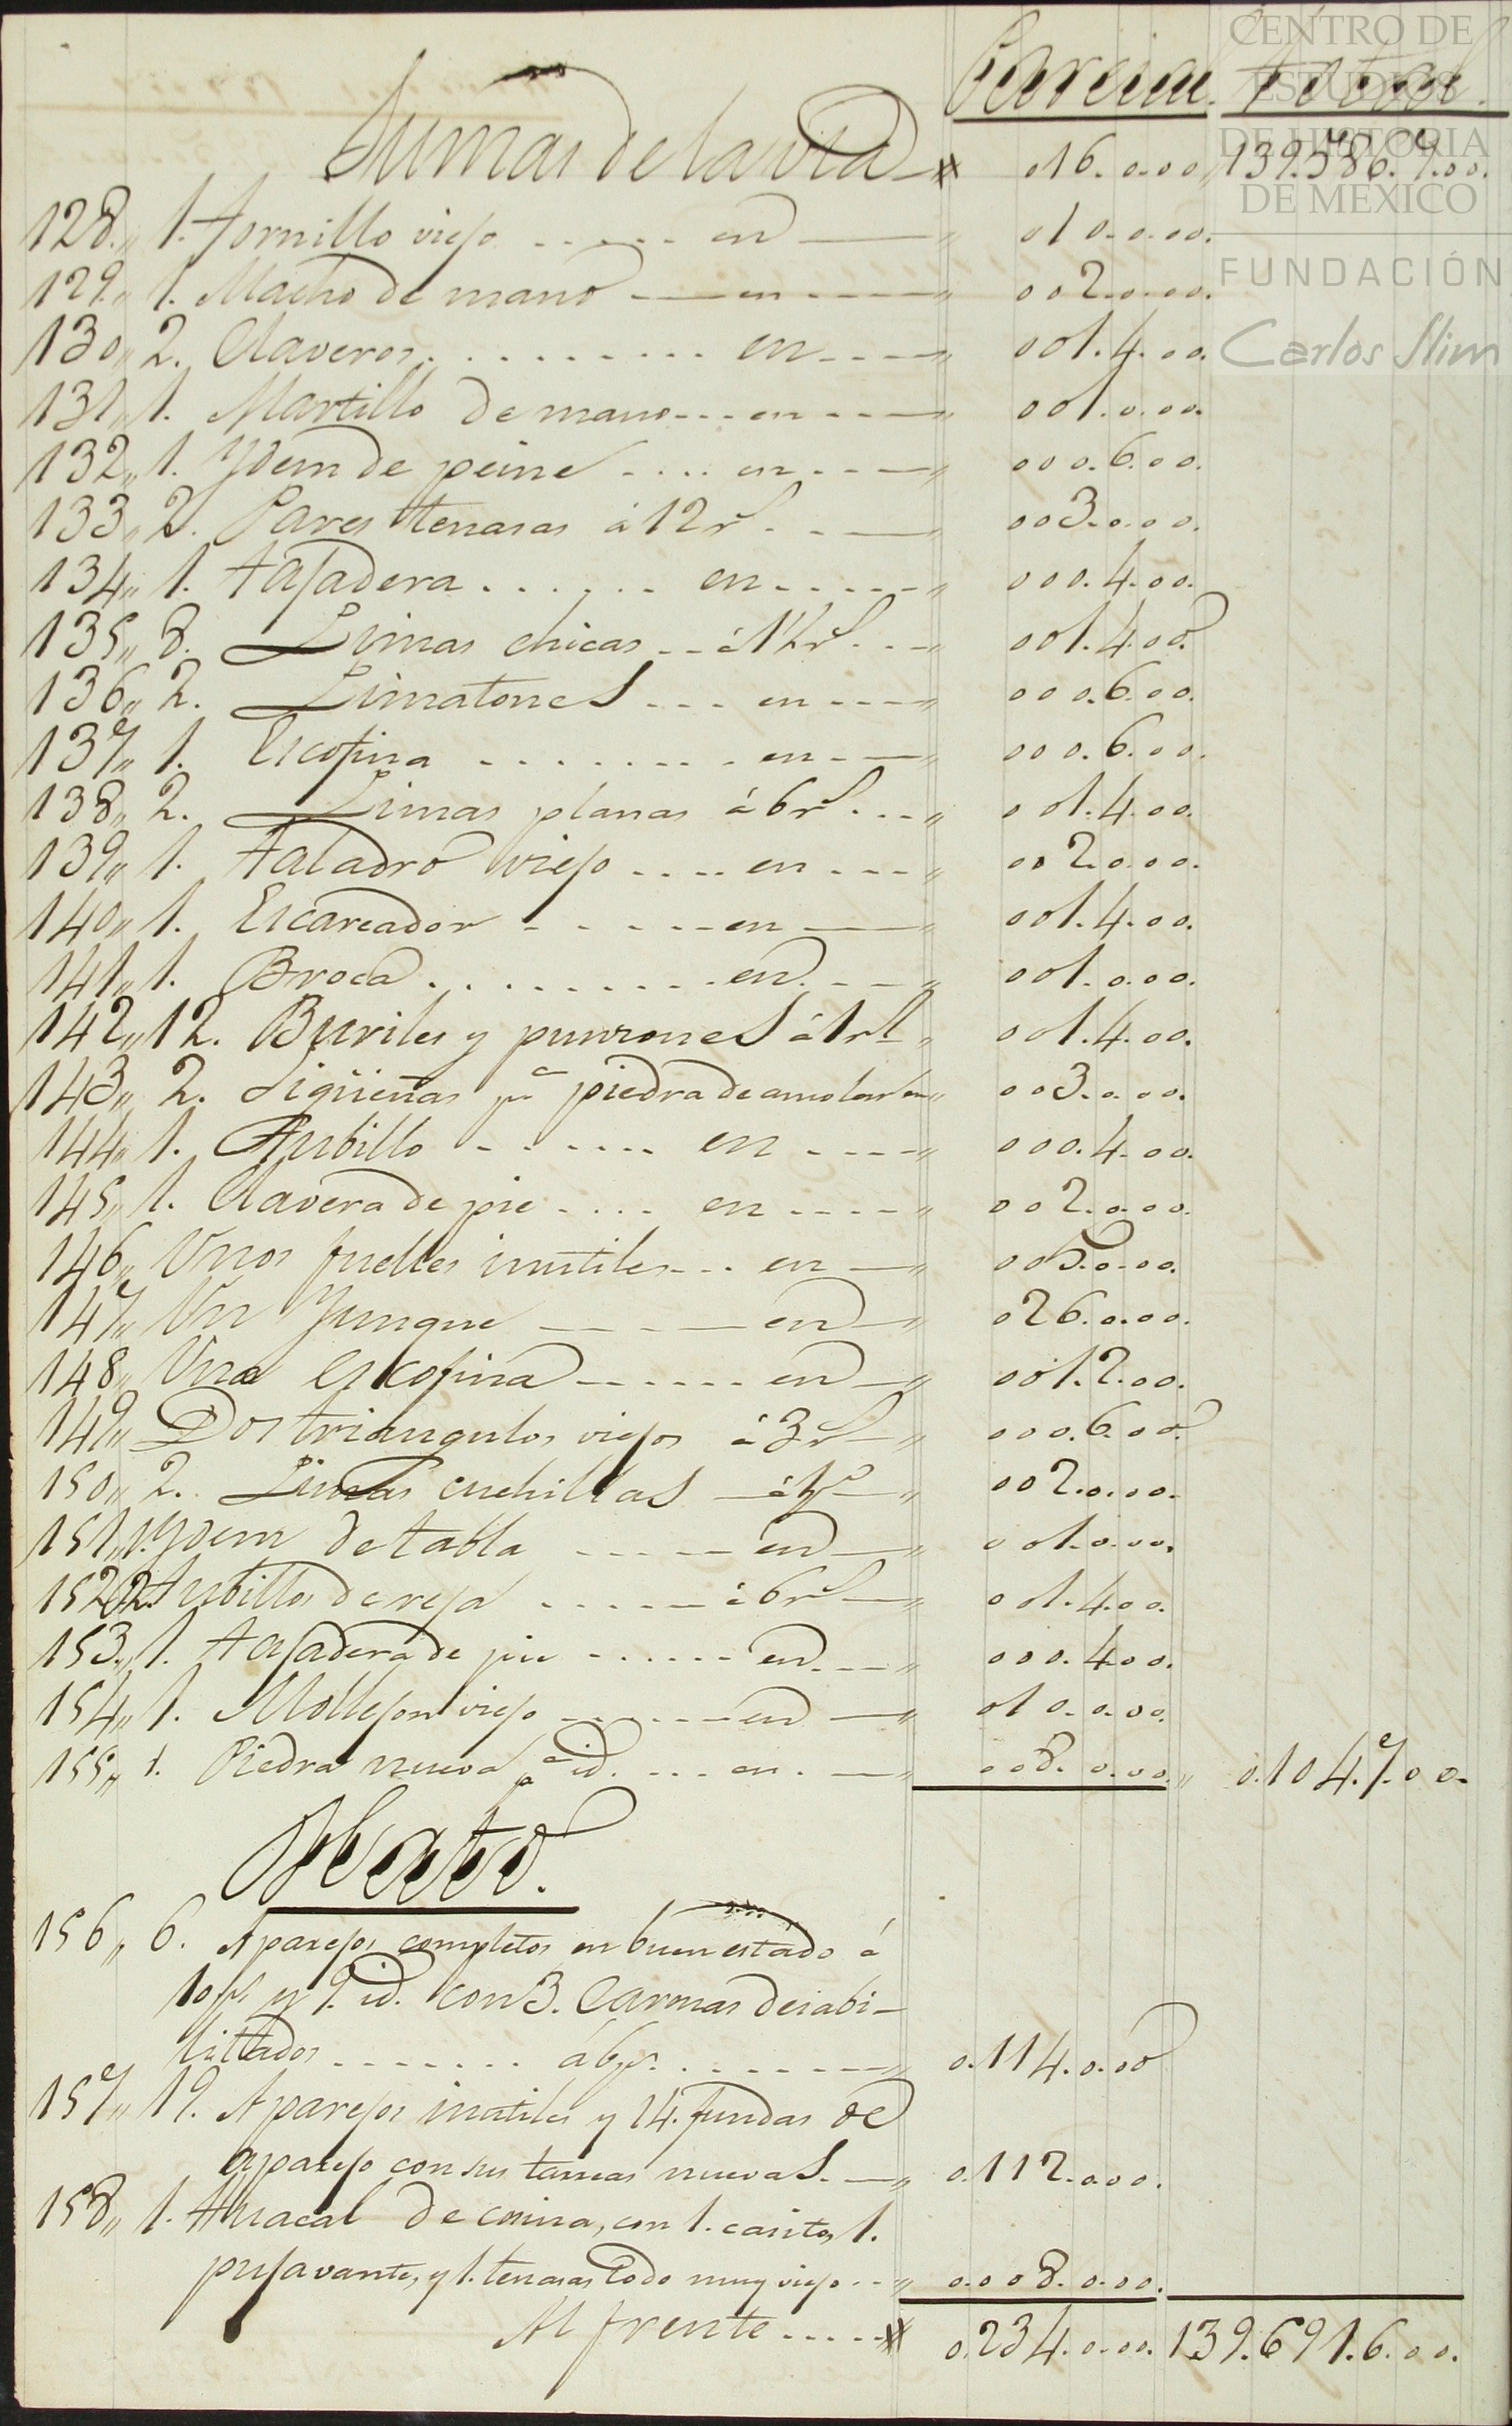 Parcial. Total.
Sumas de la vta 016.0.00 139.586.7.00.
128. 1. Tornillo viejo ...... en 010.0.00.
129. 1. Macho de mano en 002.0.00.
130. 2. Claveros ......... en 001.4.00.
131. 1. Martillo de mano... en 001.0.00.
132. 1. Ydem de peine .... en 000.6.00.
133. 2. Pares tenasas á 12 rs. 003.0.00.
134. 1. Tajadera ...... en 000.4.00.
135. 8. Limas chicas á 1½ rs. 001.4.00.
136. 2. Limatones ... en 000.6.00.
137. 1. Escofina ........ en 000.6.00.
138. 2. Limas planas á 6 rs. 001.4.00.
139. 1. Taladro viejo .... en 002.0.00.
140. 1. Escareador ..... en 001.4.00.
141. 1. Broca ......... en 001.0.00.
142. 12. Buriles y punzones á 1 rl 001.4.00.
143. 2. Sigüeñas pa piedra de amolar en 003.0.00.
144. 1. Aubillo ...... en 000.4.00.
145. 1. Clavera de pie .... en 002.0.00.
146. Unos fuelles inutiles... en 005.0.00.
147. Un Yunque en 026.0.00.
148. Una escofina ...... en 001.2.00.
149. Dos triangulos viejos á 3 rs 000.6.00.
150. 2. Limas cuchillas á 1 p 002.0.00.
151. 1. Ydem de tabla ..... en 001.0.00.
152. 2. Aubillos de reja ..... á 6 rs 001.4.00.
153. 1. Tajadera de pie ...... en 000.4.00.
154. 1. Mollejon viejo ...... en 010.0.00.
155. 1. Piedra nueva pa id. ... en. 008.0.00. 0.104.7.00.
Hato.
156. 6. Aparejos completos en buen estado á
10 ps. y 9. id. con 3. Caronas desabi-
litados ....... á 6 ps. 0.114.0.00
157. 19. Aparejos inutiles y 14. fundas de
aparejo con sus tareas nuevas. 0.112.0.00.
158. 1. Huacal de cosina, con 1. casito, 1.
pujavante, y 1. tenasas todo muy viejo 0.008.0.00.
Al frente ..... 0.234.0.00. 139.691.6.00.
CENTRO DE
ESTUDIOS
DE HISTORIA
DE MEXICO
FUNDACIÓN
Carlos Slim